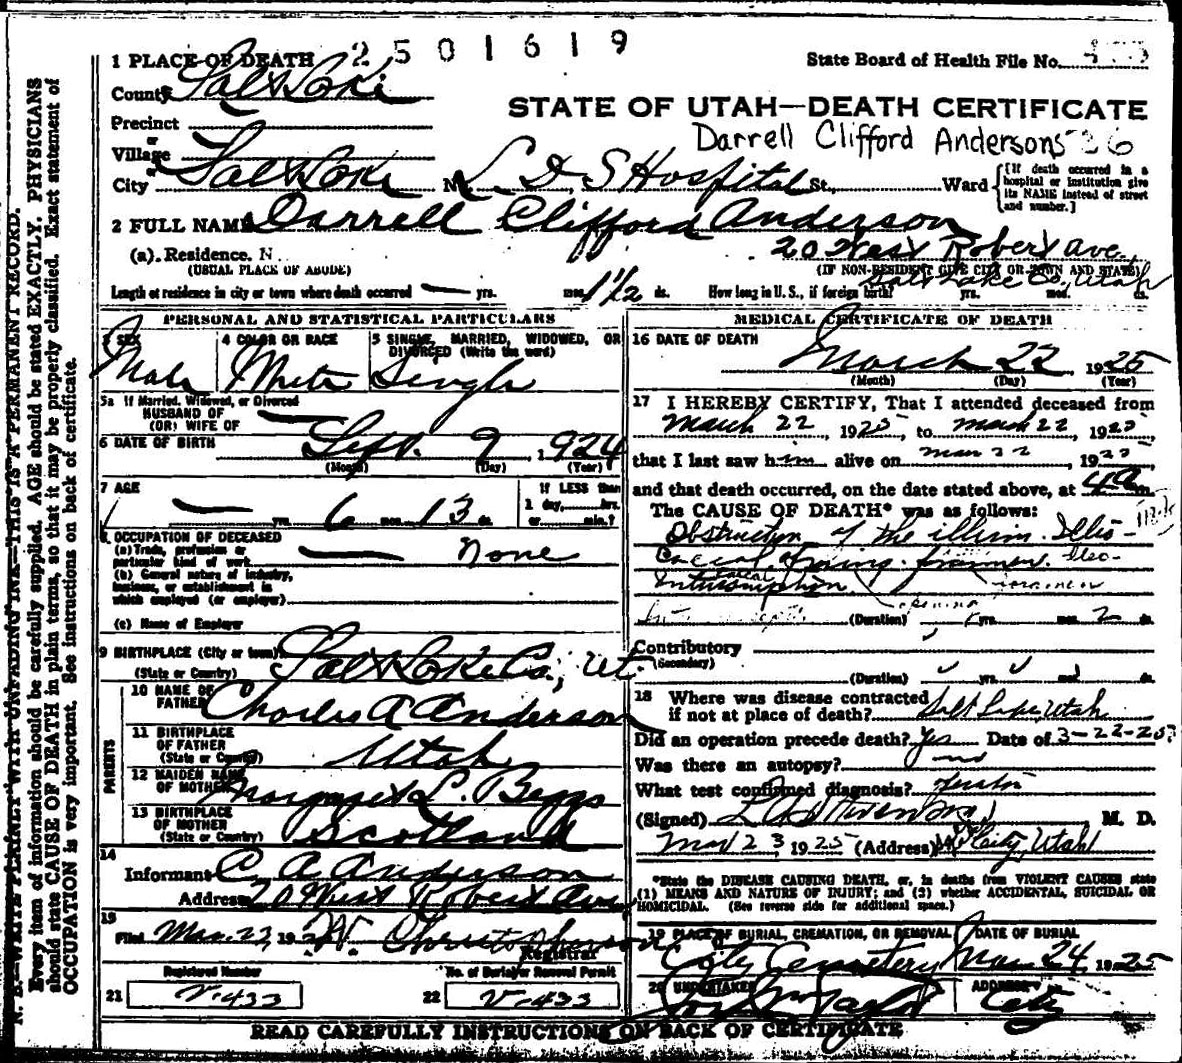 1 PLACE OF DEATH 2501619
State Board of Health File No.
County Salt Lake
STATE OF UTAH—DEATH CERTIFICATE
Precinct
Darrell Clifford Anderson
or
Village
or
City Salt Lake No. L. D. S Hospital St., Ward
[If death occurred in a hospital or institution give its NAME instead of street and number.]
2 FULL NAME Darrell Clifford Anderson
(a). Residence. N 20 West Robert Ave,
(USUAL PLACE OF ABODE) (IF NON-RESIDENT GIVE CITY OR TOWN AND STATE)
Salt Lake Co., Utah
Length of residence in city or town where death occurred yrs. mos. 1 1/2 ds. How long in U. S., if foreign birth? yrs. mos. ds.
PERSONAL AND STATISTICAL PARTICULARS
3 SEX 4 COLOR OR RACE 5 SINGLE, MARRIED, WIDOWED, OR
DIVORCED (Write the word)
Male White Single
5a If Married, Widowed, or Divorced
HUSBAND OF
(OR) WIFE OF
6 DATE OF BIRTH Sept. 9 1924
(Month) (Day) (Year)
7 AGE If LESS than
1 day, hrs.
yrs. 6 mos. 13 ds. or min.?
8 OCCUPATION OF DECEASED
(a) Trade, profession or
particular kind of work None
(b) General nature of industry,
business, or establishment in
which employed (or employer)
(c) Name of Employer
9 BIRTHPLACE (City or town) Salt Lake Co., Ut.
(State or Country)
PARENTS
10 NAME OF
FATHER Charles A Anderson
11 BIRTHPLACE
OF FATHER
(State or Country) Utah
12 MAIDEN NAME
OF MOTHER Margaret L. Beggs
13 BIRTHPLACE
OF MOTHER
(State or Country) Scotland
14
Informant C. A Anderson
Address 20 West Robert Ave
15
Filed Mar. 23, 192 W. Christopherson
Registrar
Registered Number No. of Burial or Removal Permit
21 V-433 22 V-433
MEDICAL CERTIFICATE OF DEATH
16 DATE OF DEATH
March 22 1925
(Month) (Day) (Year)
17 I HEREBY CERTIFY, That I attended deceased from
March 22, 1925, to March 22, 1925
that I last saw him alive on Mar 22, 1925
and that death occurred, on the date stated above, at 4 a m.
The CAUSE OF DEATH* was as follows:
Obstruction of the illium. Illio-
(Duration) yrs. mos. 2 ds.
Contributory
(Secondary)
(Duration) yrs. mos. ds.
18 Where was disease contracted
if not at place of death? Salt Lake, Utah
Did an operation precede death? Yes Date of 3-22-25?
Was there an autopsy? no
What test confirmed diagnosis?
(Signed) M. D.
Mar 23 1925 (Address) City, Utah
*State the DISEASE CAUSING DEATH, or, in deaths from VIOLENT CAUSES state
(1) MEANS AND NATURE OF INJURY; and (2) whether ACCIDENTAL, SUICIDAL OR
HOMICIDAL. (See reverse side for additional space.)
19 PLACE OF BURIAL, CREMATION, OR REMOVAL DATE OF BURIAL
City Cemetery Mar 24 1925
20 UNDERTAKER ADDRESS
City
READ CAREFULLY INSTRUCTIONS ON BACK OF CERTIFICATE
N. B.—WRITE PLAINLY WITH UNFADING INK—THIS IS A PERMANENT RECORD.
Every item of information should be carefully supplied. AGE should be stated EXACTLY. PHYSICIANS
should state CAUSE OF DEATH in plain terms, so that it may be properly classified. Exact statement of
OCCUPATION is very important. See instructions on back of certificate.